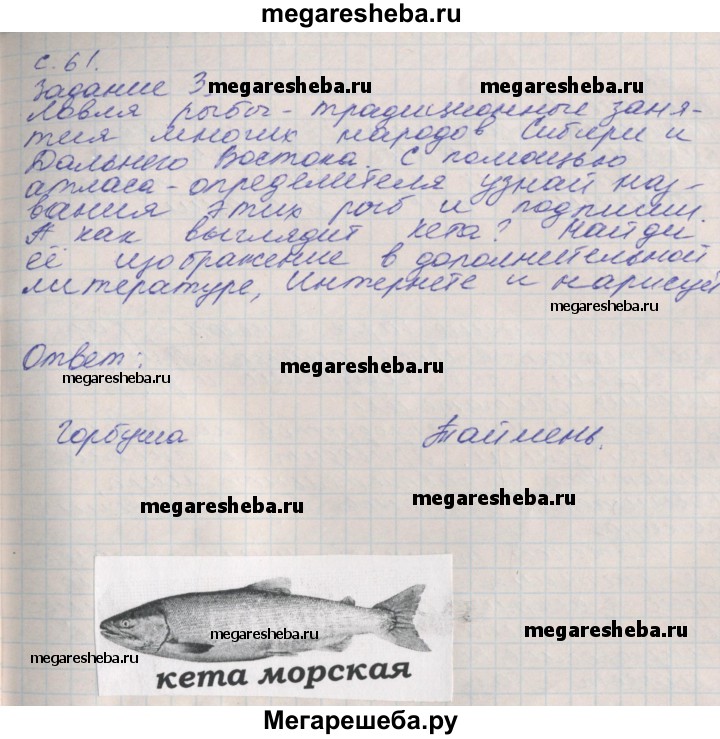 megaresheba.ru
с. 61.
Задание 3 megaresheba.ru megaresheba.ru
Ловля рыбы - традиционные заня-
тия многих народов Сибири и
Дальнего Востока. С помощью
атласа - определителя узнай наз-
вания этих рыб и подпиши.
А как выглядит кета? Найди
её изображение в дополнительной
литературе, Интернете и нарисуй
megaresheba.ru
Ответ:
megaresheba.ru megaresheba.ru
Горбуша Таймень.
megaresheba.ru megaresheba.ru
megaresheba.ru megaresheba.ru
megaresheba.ru
кета морская
Мегарешеба.ру